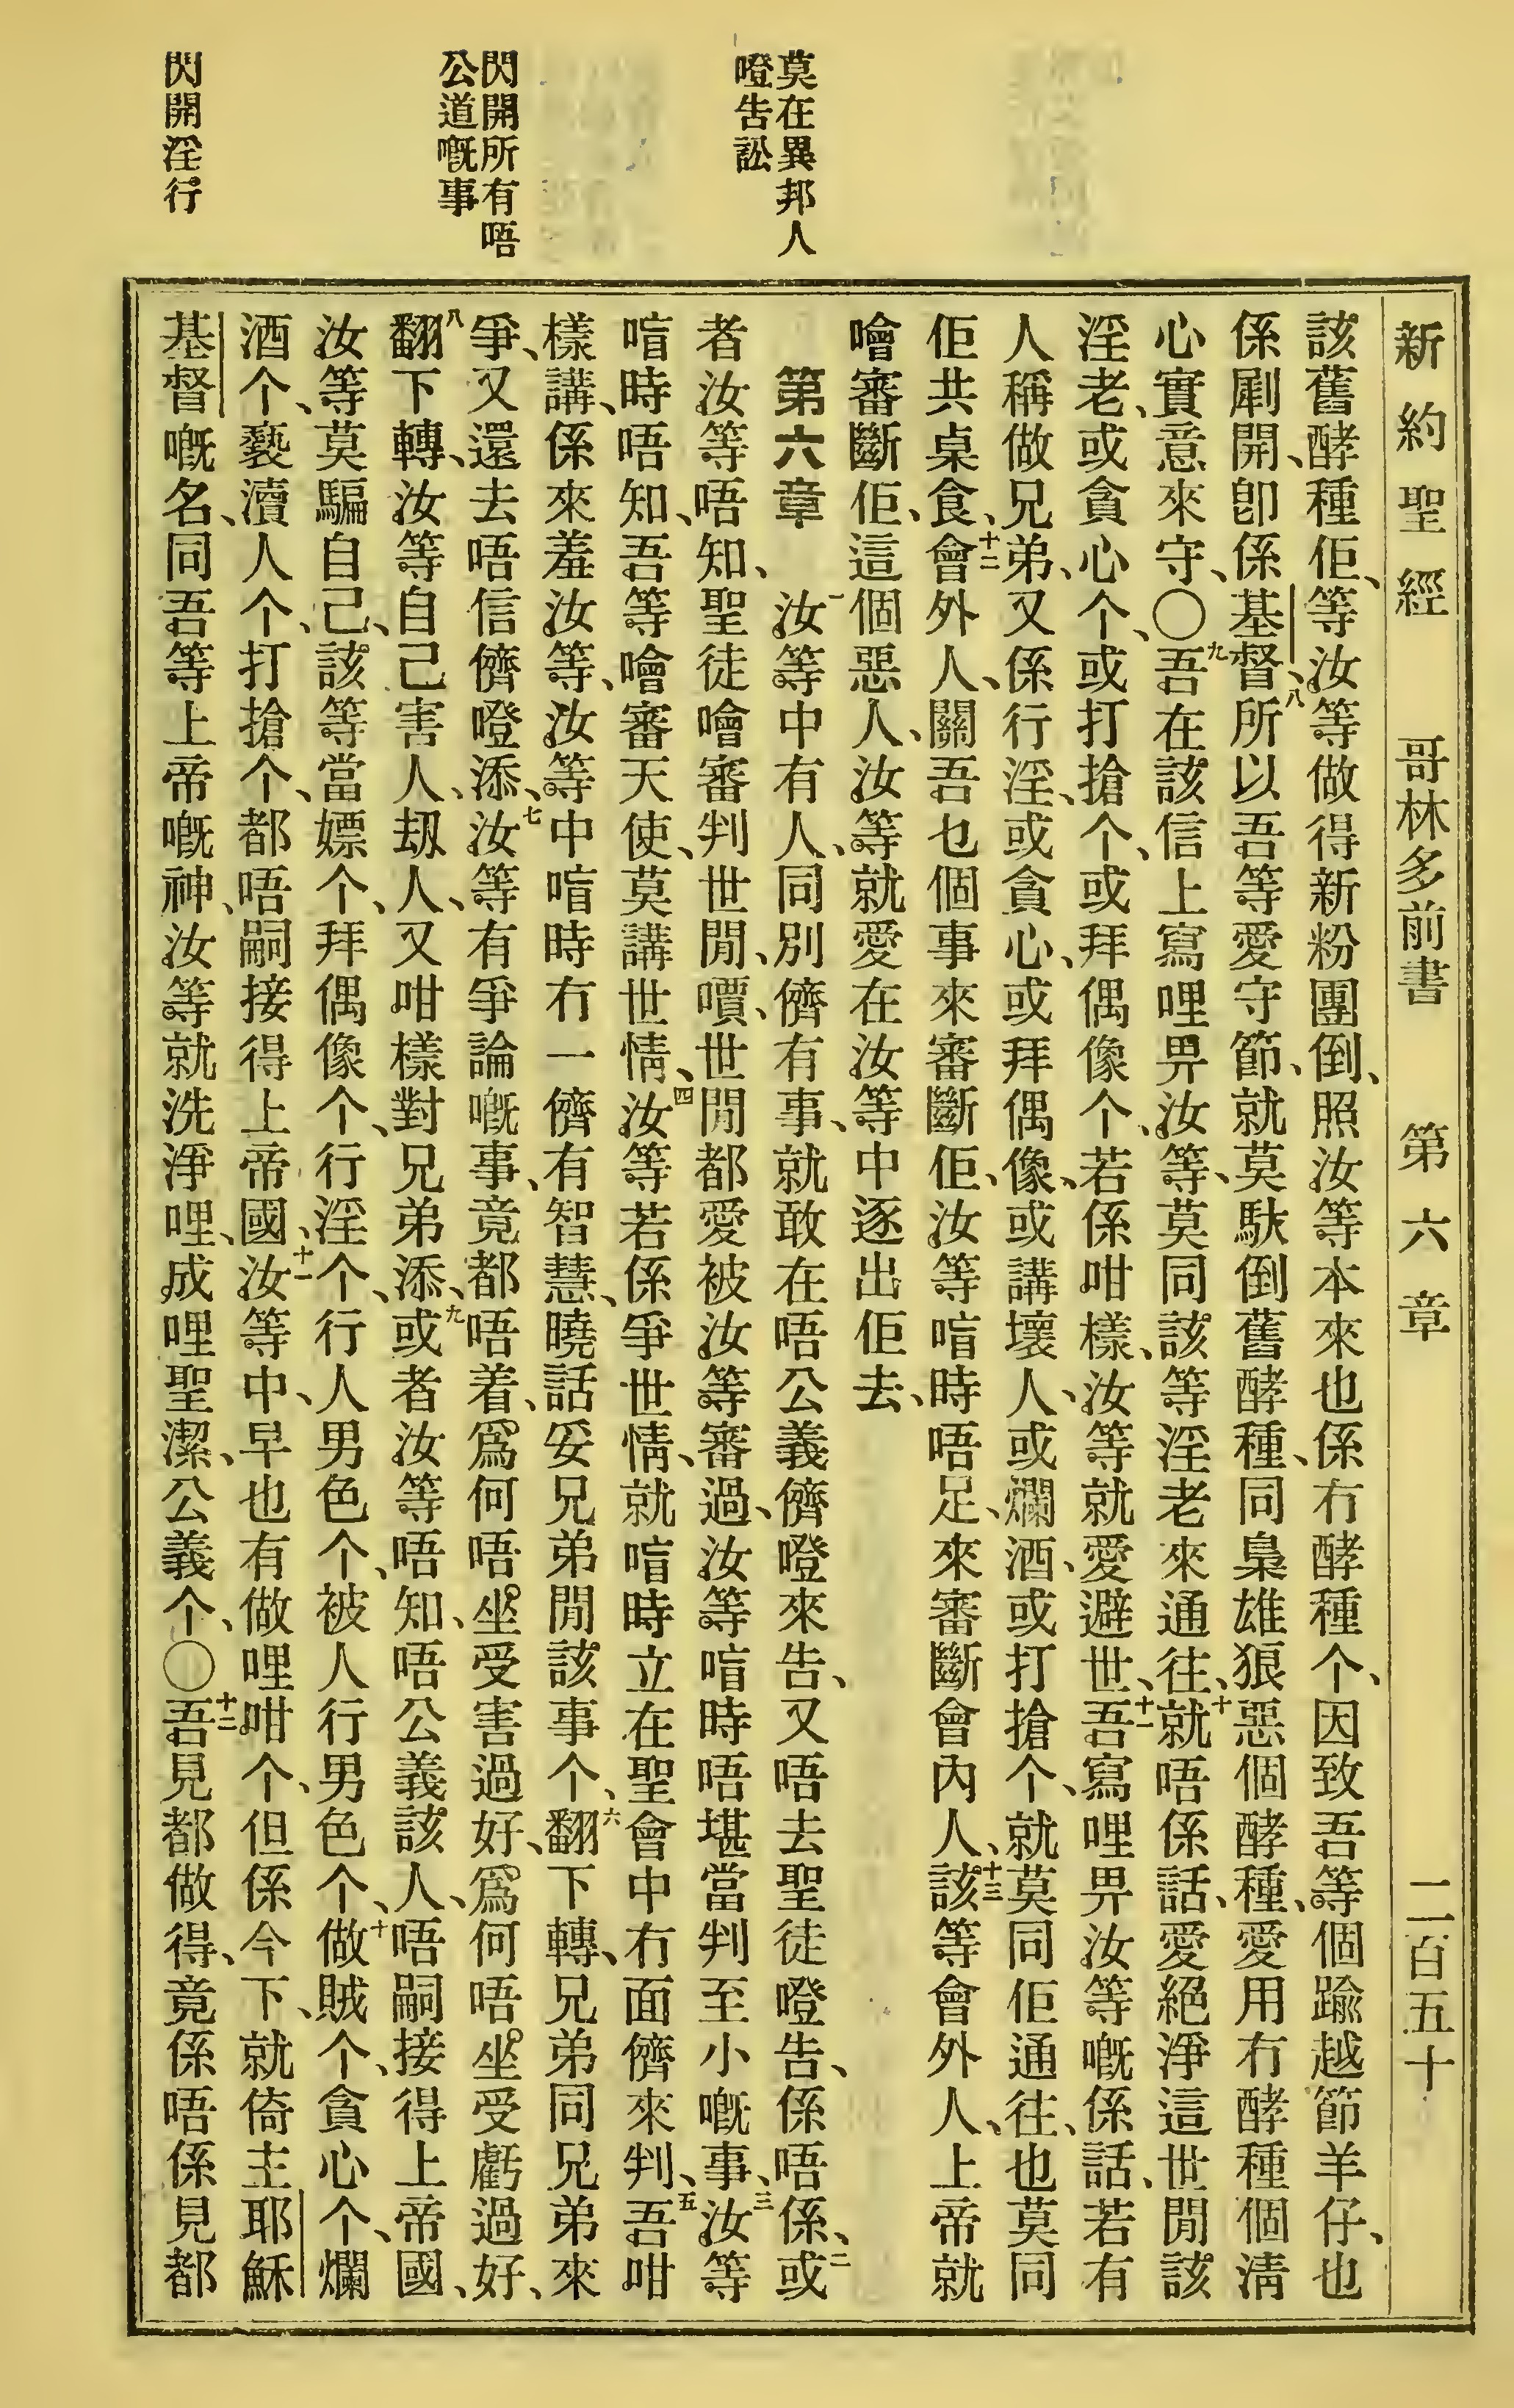 新約聖經 哥林多前書 第六章 二百五十
該舊酵種佢、等汝等做得新粉團倒、照汝等本來也係冇酵種个、因致吾等個踰越節羊仔、也
係剮開、卽係基督、八所以吾等愛守節、就莫馱倒舊酵種、同梟雄狼惡個酵種、愛用冇酵種個淸
心實意來守、〇九吾在該信上寫哩畀汝等、莫同該等淫老來通往、十就唔係話、愛絕淨這世閒該
淫老、或貪心个、或打搶个、或拜偶像个、若係咁樣、汝等就愛避世、十一吾寫哩畀汝等嘅係話、若有
人稱做兄弟、又係行淫、或貪心、或拜偶像、或講壞人、或爛酒、或打搶个、就莫同佢通往、也莫同
佢共桌食、十二會外人、關吾乜個事來審斷佢、汝等喑時唔足、來審斷會內人、十三該等會外人、上帝就
噲審斷佢、這個惡人、汝等就愛在汝等中逐出佢去、
第六章 一汝等中有人、同別儕有事、就敢在唔公義儕噔來告、又唔去聖徒噔告、係唔係、二或
者汝等唔知、聖徒噲審判世閒、嘪、世閒都愛被汝等審過、汝等喑時唔堪當判至小嘅事、三汝等
喑時唔知、吾等噲審天使、莫講世情、四汝等若係爭世情、就喑時立在聖會中冇面儕來判、五吾咁
樣講、係來羞汝等、汝等中喑時冇一儕有智慧、曉話妥兄弟閒該事个、六翻下轉、兄弟同兄弟來
爭、又還去唔信儕噔添、七汝等有爭論嘅事、竟都唔着、爲何唔坐受害過好、爲何唔坐受虧過好、
八翻下轉、汝等自己害人、刼人、又咁樣對兄弟添、九或者汝等唔知、唔公義該人、唔嗣接得上帝國、
汝等莫騙自己、該等當嫖个、拜偶像个、行淫个、行人男色个、被人行男色个、十做賊个、貪心个、爛
酒个、褻瀆人个、打搶个、都唔嗣接得上帝國、十一汝等中、早也有做哩咁个、但係今下、就倚主耶穌
基督嘅名、同吾等上帝嘅神、汝等就洗淨哩、成哩聖潔、公義个、〇十二吾見都做得、竟係唔係見都
莫在異邦人
噔告訟
閃開所有唔
公道嘅事
閃開淫行